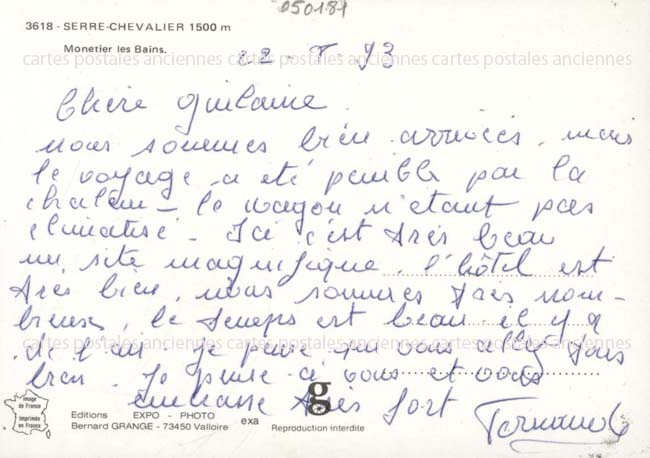 050181
3618 - SERRE-CHEVALIER 1500 m
Monetier les Bains.
22 - 8 - 93
cartes postales anciennes cartes postales anciennes cartes postales anciennes
Chère Guilaine
nous sommes bien arrivées, mais
le voyage a été penible par la
chaleur - le wagon n'étant pas
climatisé. Ici c'est très beau
un site magnifique, l'hôtel est
très bien, nous sommes très nom-
breuses, le temps est beau il y a
cartes postales anciennes cartes postales anciennes cartes postales anciennes
de l'air. Je pense que vous allez tous
bien. Je pense à vous et vous
embrasse très fort
Image
de France
Imprimée
en France
Editions EXPO - PHOTO
Bernard GRANGE - 73450 Valloire
exa
g
Reproduction interdite